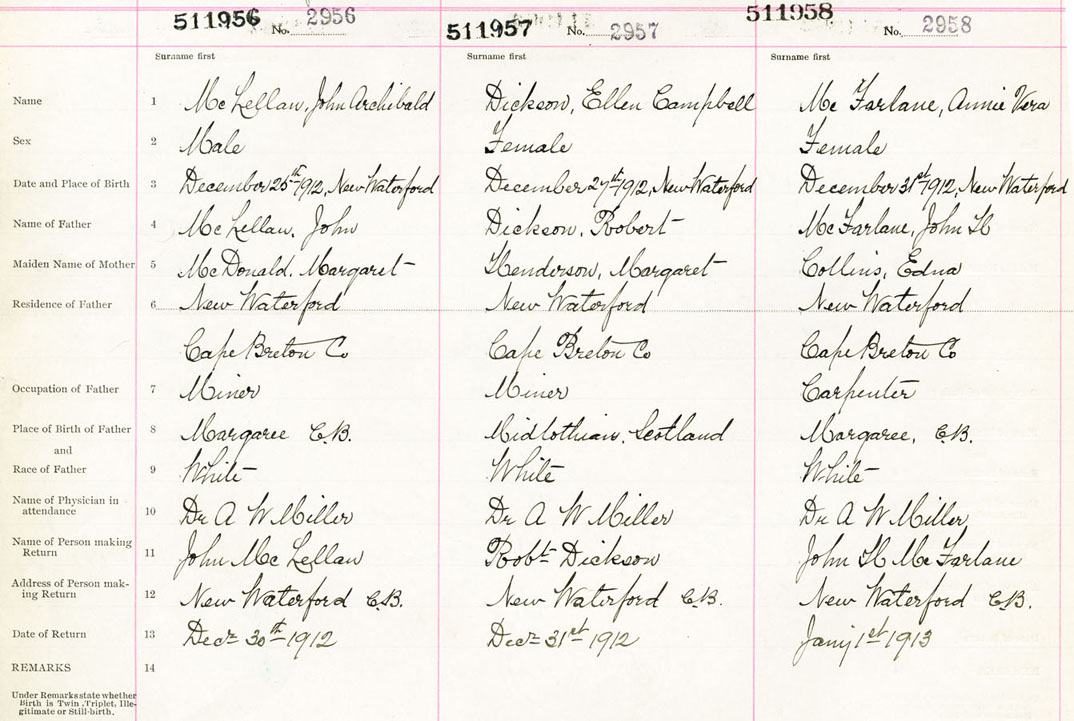 511956 No. 2956 511957 No. 2957 511958 No. 2958
Surname first Surname first Surname first
Name 1 Mc Lellan, John Archibald Dickson, Ellen Campbell Mc Farlane, Annie Vera
Sex 2 Male Female Female
Date and Place of Birth 3 December 25th 1912, New Waterford December 27th 1912, New Waterford December 31st 1912, New Waterford
Name of Father 4 Mc Lellan, John Dickson, Robert Mc Farlane, John H
Maiden Name of Mother 5 Mc Donald, Margaret Henderson, Margaret Collins, Edna
Residence of Father 6 New Waterford New Waterford New Waterford
Cape Breton Co Cape Breton Co Cape Breton Co
Occupation of Father 7 Miner Miner Carpenter
Place of Birth of Father 8 Margaree C.B. Midlothian, Scotland Margaree, C.B.
and
Race of Father 9 White White White
Name of Physician in
attendance 10 Dr A W Miller Dr A W Miller Dr A W Miller
Name of Person making
Return 11 John Mc Lellan Robt Dickson John H Mc Farlane
Address of Person mak-
ing Return 12 New Waterford C.B. New Waterford C.B. New Waterford C.B.
Date of Return 13 Decr 30th 1912 Decr 31st 1912 Jany 1st 1913
REMARKS 14
Under Remarks state whether
Birth is Twin, Triplet, Ille-
gitimate or Still-birth.